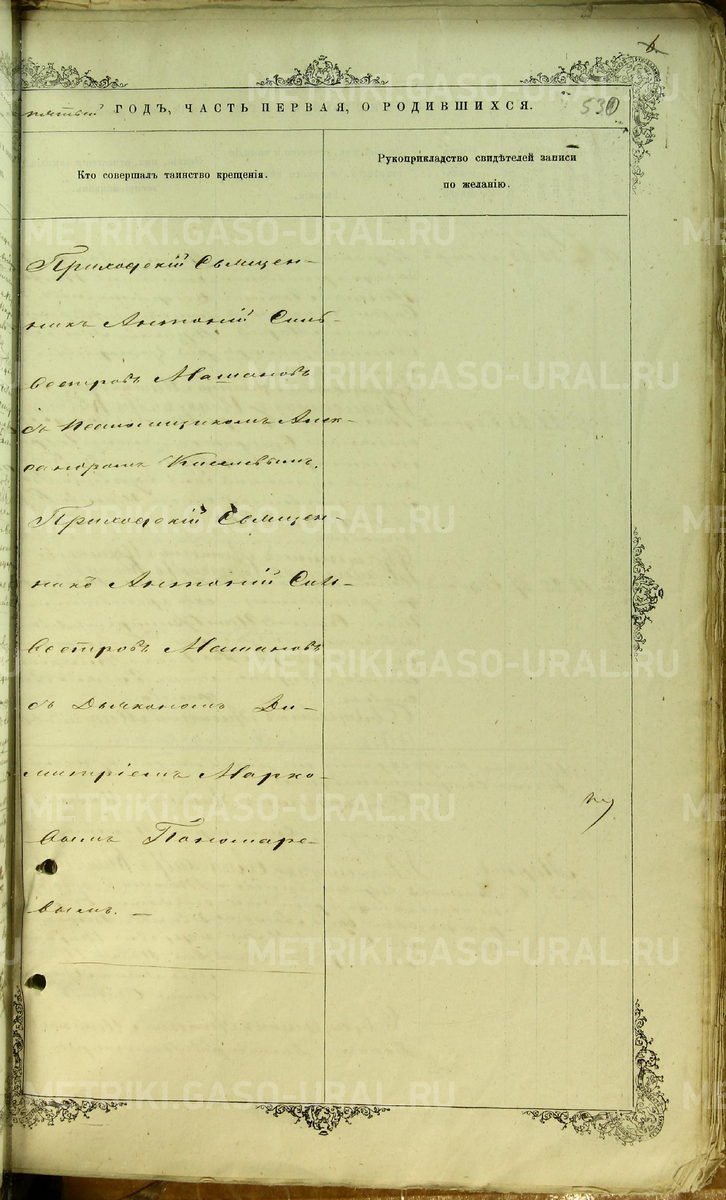 6
530
пятый ГОДЪ, ЧАСТЬ ПЕРВАЯ, О РОДИВШИХСЯ.
Кто совершалъ таинство крещенія.
Рукоприкладство свидѣтелей записи
по желанію.
Приходскій Священ-
никъ Антоній Силь-
вестровъ Машановъ
съ Псаломщикомъ Алек-
сандромъ Киселевымъ.
Приходскій Священ-
никъ Антоній Сил-
вестровъ Машановъ
съ Дьякономъ Ди-
митріемъ Марко-
вымъ Пономаре-
вымъ. —
METRIKI.GASO-URAL.RU